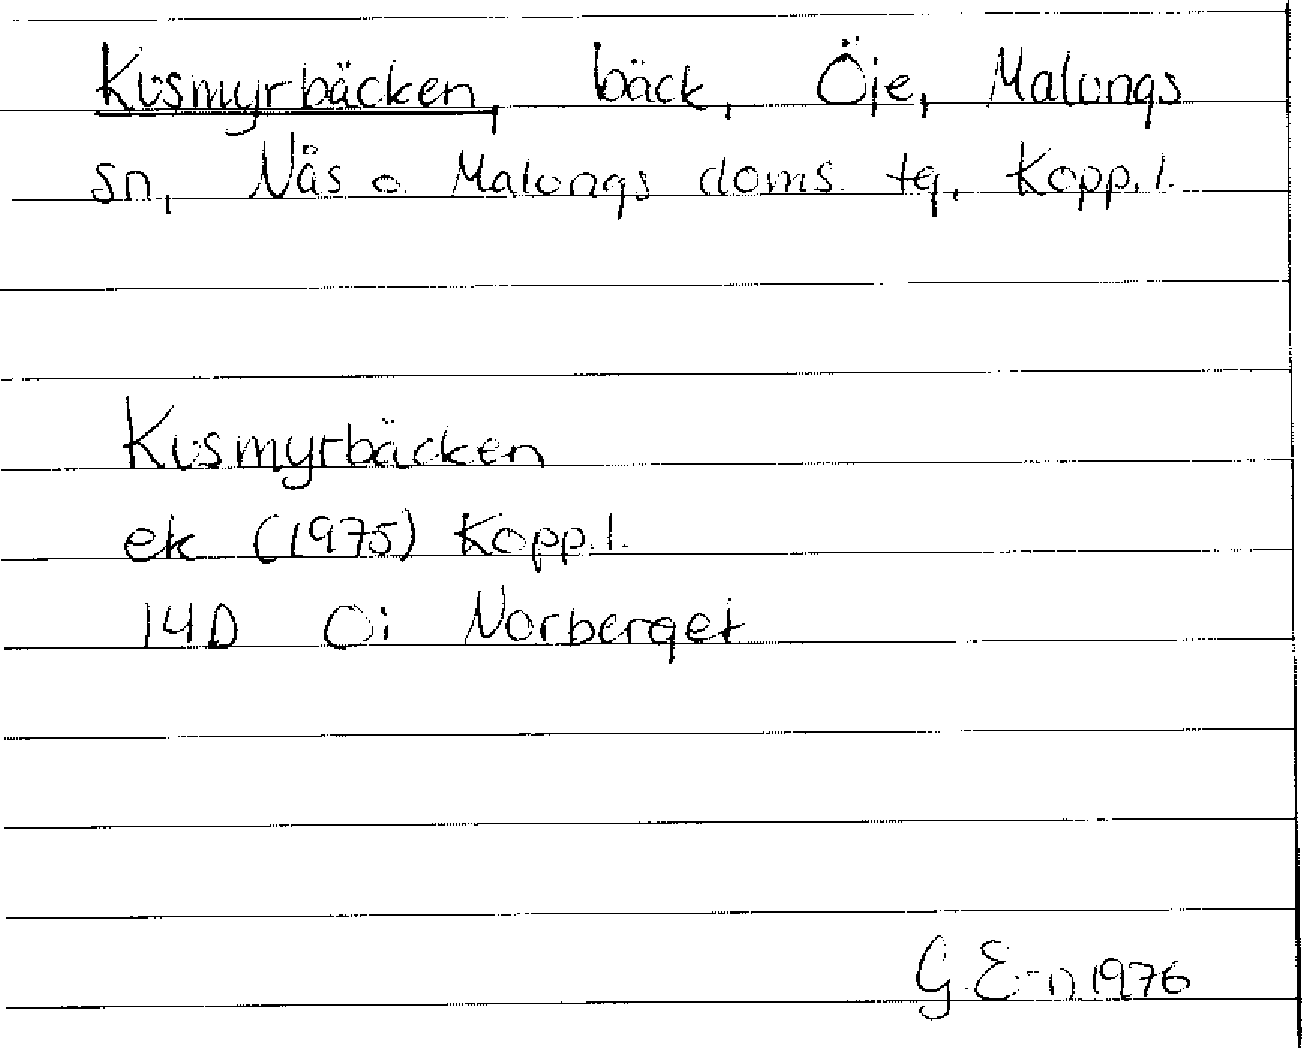 Kusmyrbäcken, bäck, Öje, Malungs
sn, Näs o Malungs doms. tg. Kopp. l.
Kusmyrbäcken
ek (1975) Kopp. l.
14D Oi Norberget
G E-n 1976